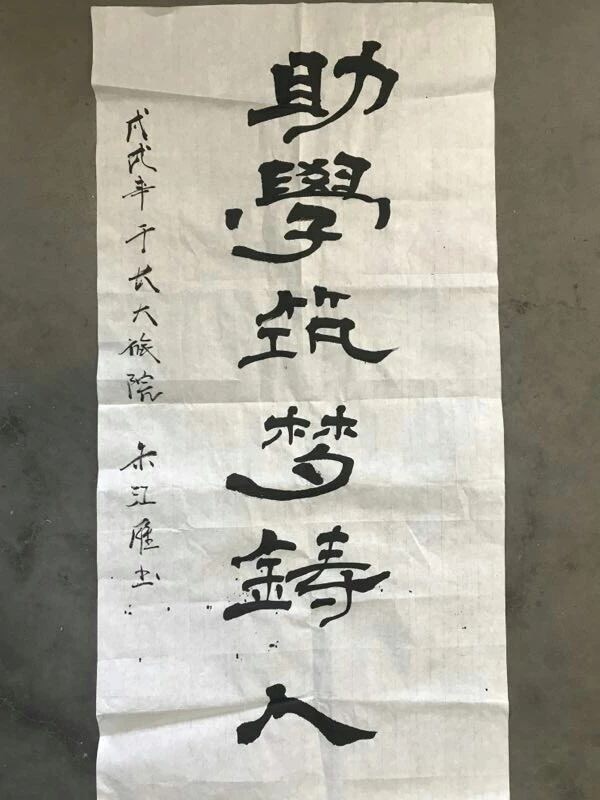 助學筑梦鑄人
戊戌年于长大旅院 朱江雁书